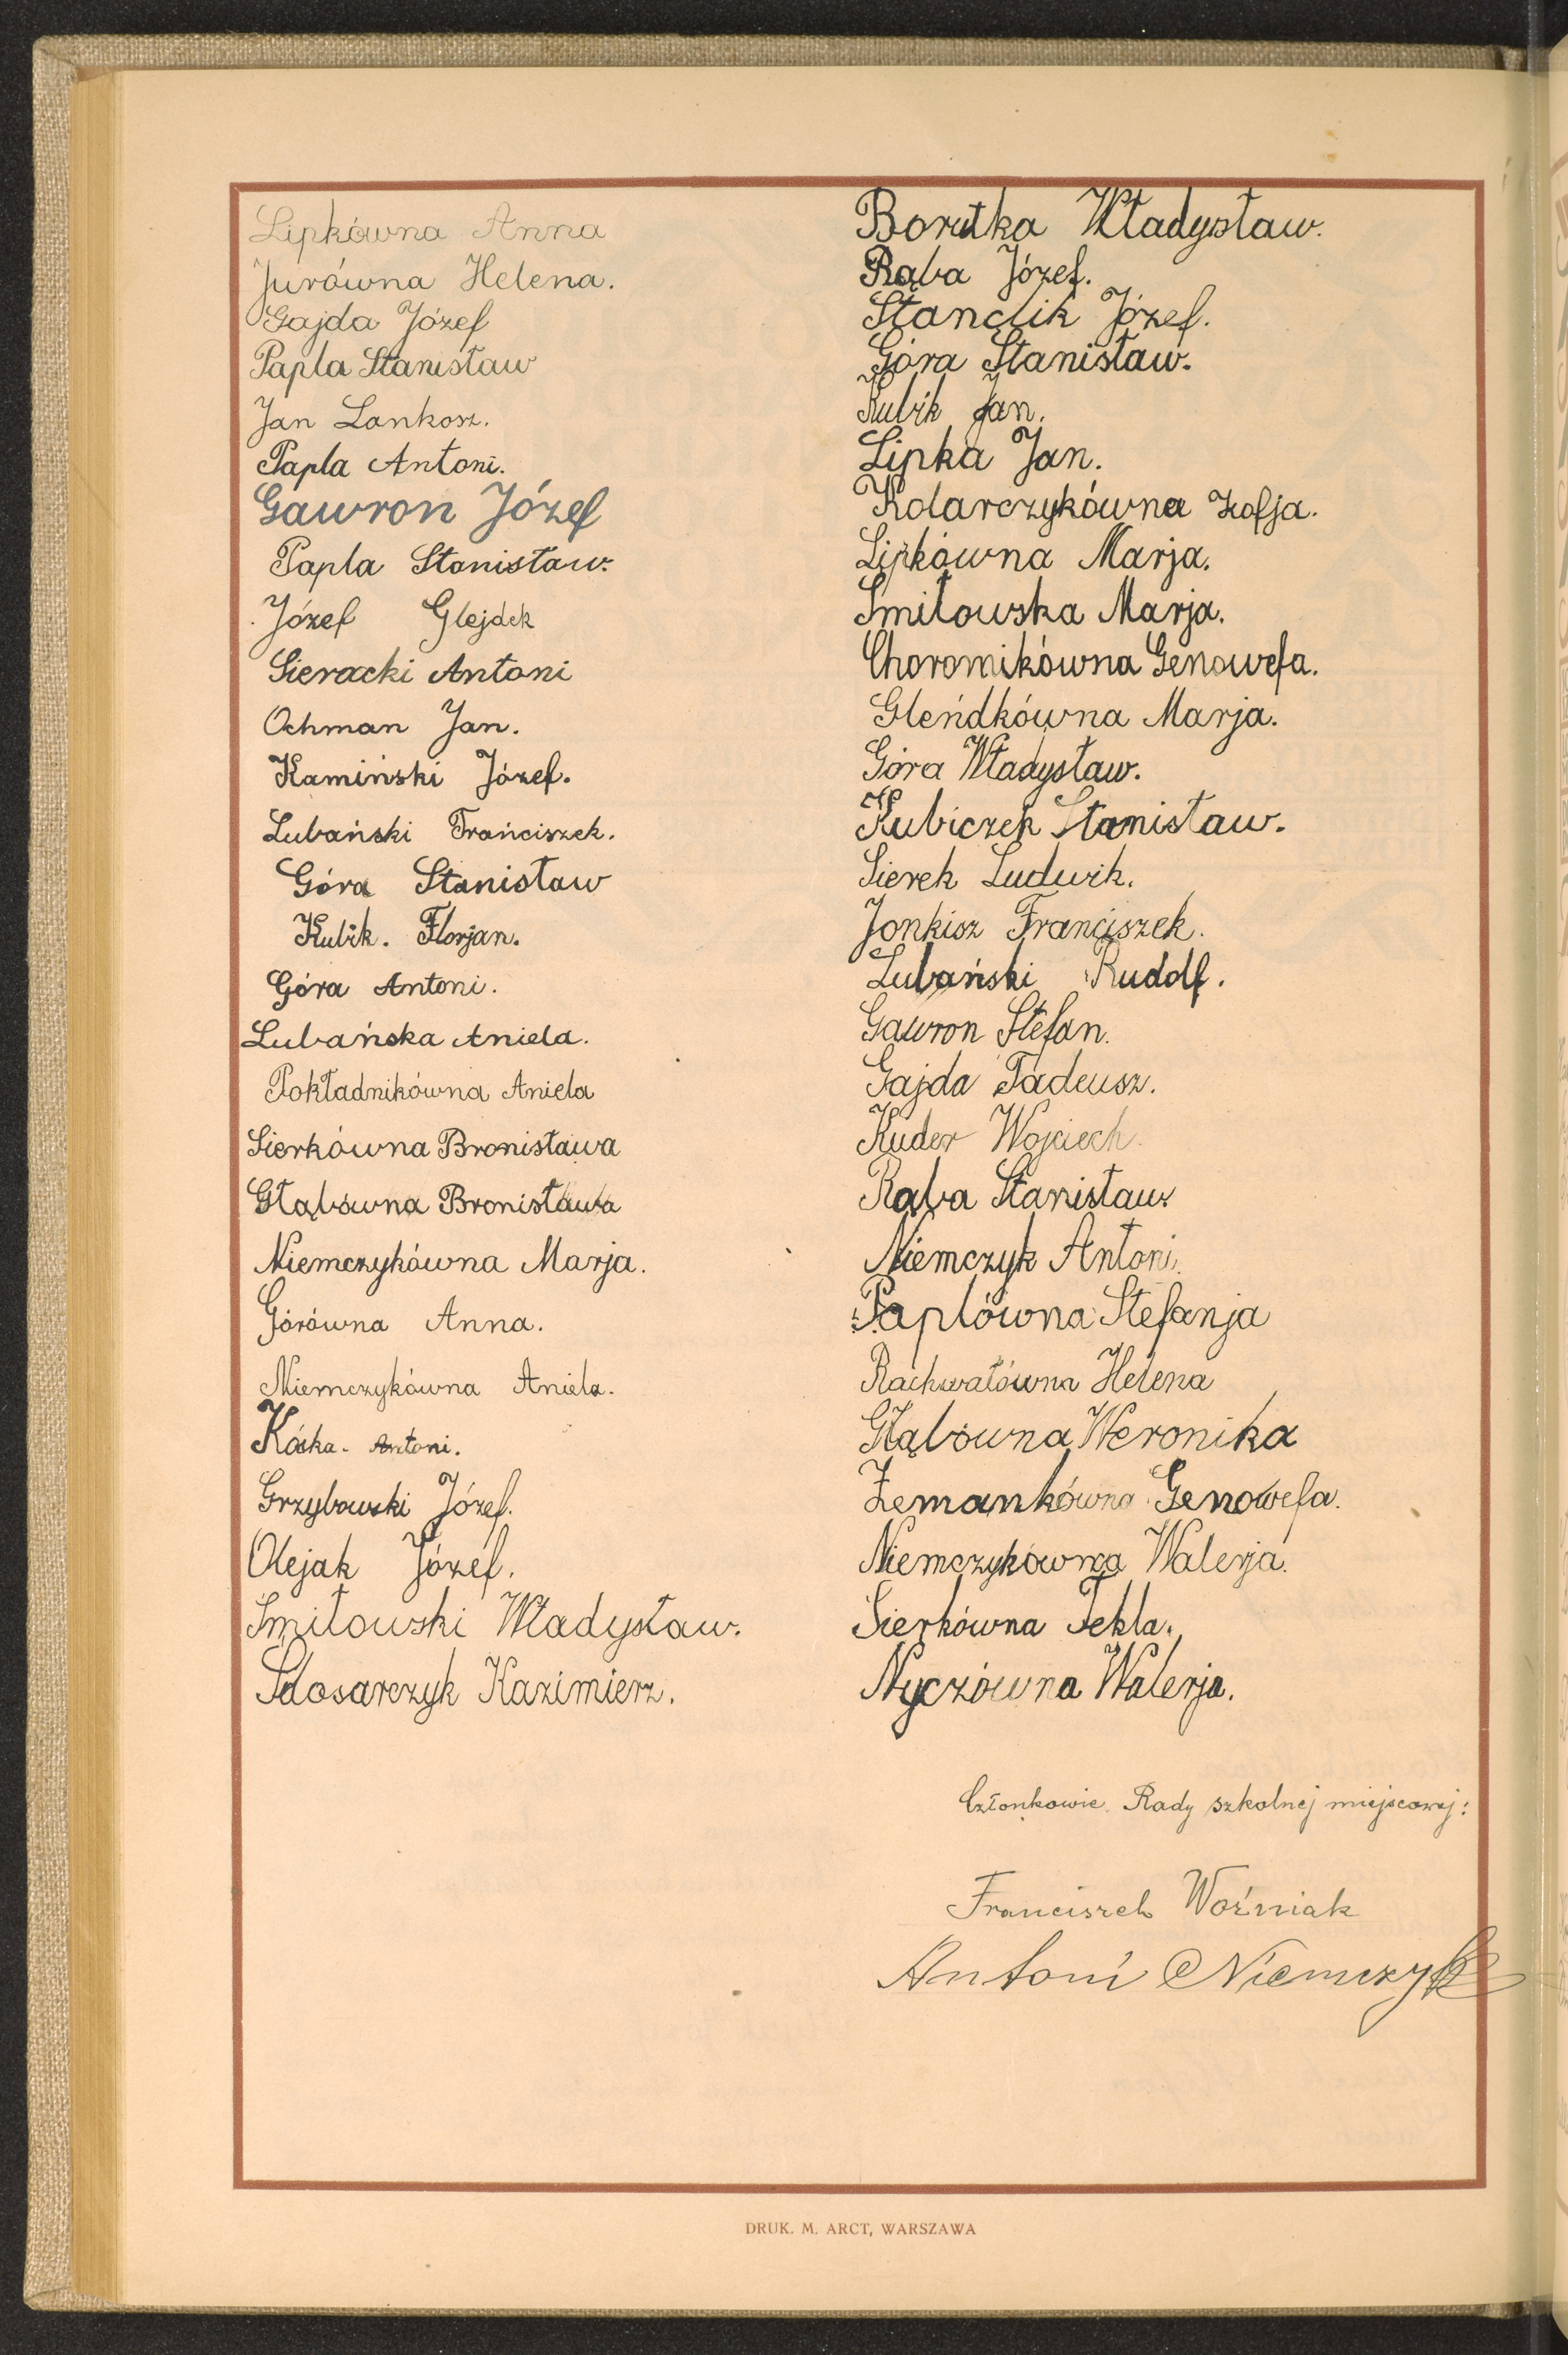 Lipkówna Anna
Jurówna Helena.
Gajda Józef
Papla Stanisław
Jan Lankosz.
Papla Antoni.
Gawron Józef
Papla Stanisław.
Józef Glejdek
Sieracki Antoni
Ochman Jan.
Kamiński Józef.
Lubański Frańciszek.
Góra Stanisław
Kubik. Florjan.
Góra Antoni.
Lubańska Aniela.
Pokładnikówna Aniela
Sierkówna Bronisława
Głąbówna Bronisława
Niemczykówna Marja.
Górówna Anna.
Niemczykówna Aniela.
Antoni.
Grzybowski Józef.
Olejak Józef.
Smiłowski Władysław.
Kazimierz.
Borutka Władysław.
Rąba Józef.
Stanclik Józef.
Góra Stanisław.
Kubik Jan.
Lipka Jan.
Kolarczykówna Zofja.
Lipkówna Marja.
Smiłowska Marja.
Choromikówna Genowefa.
Gleńdkówna Marja.
Góra Władysław.
Kubiczek Stanisław.
Sierek Ludwik.
Jonkisz Franciszek.
Lubański Rudolf.
Gawron Stefan.
Gajda Tadeusz.
Kuder Wojciech.
Rąba Stanisław.
Niemczyk Antoni.
Paplówna Stefanja
Rachwałówna Helena
Głąbówna Weronika
Zemankówna Genowefa.
Niemczykówna Walerja.
Sierkówna Tekla.
Nyczówna Walerja.
Członkowie Rady szkolnej miejscowej:
Franciszek Woźniak
Antoni Niemczyk
DRUK. M. ARCT, WARSZAWA